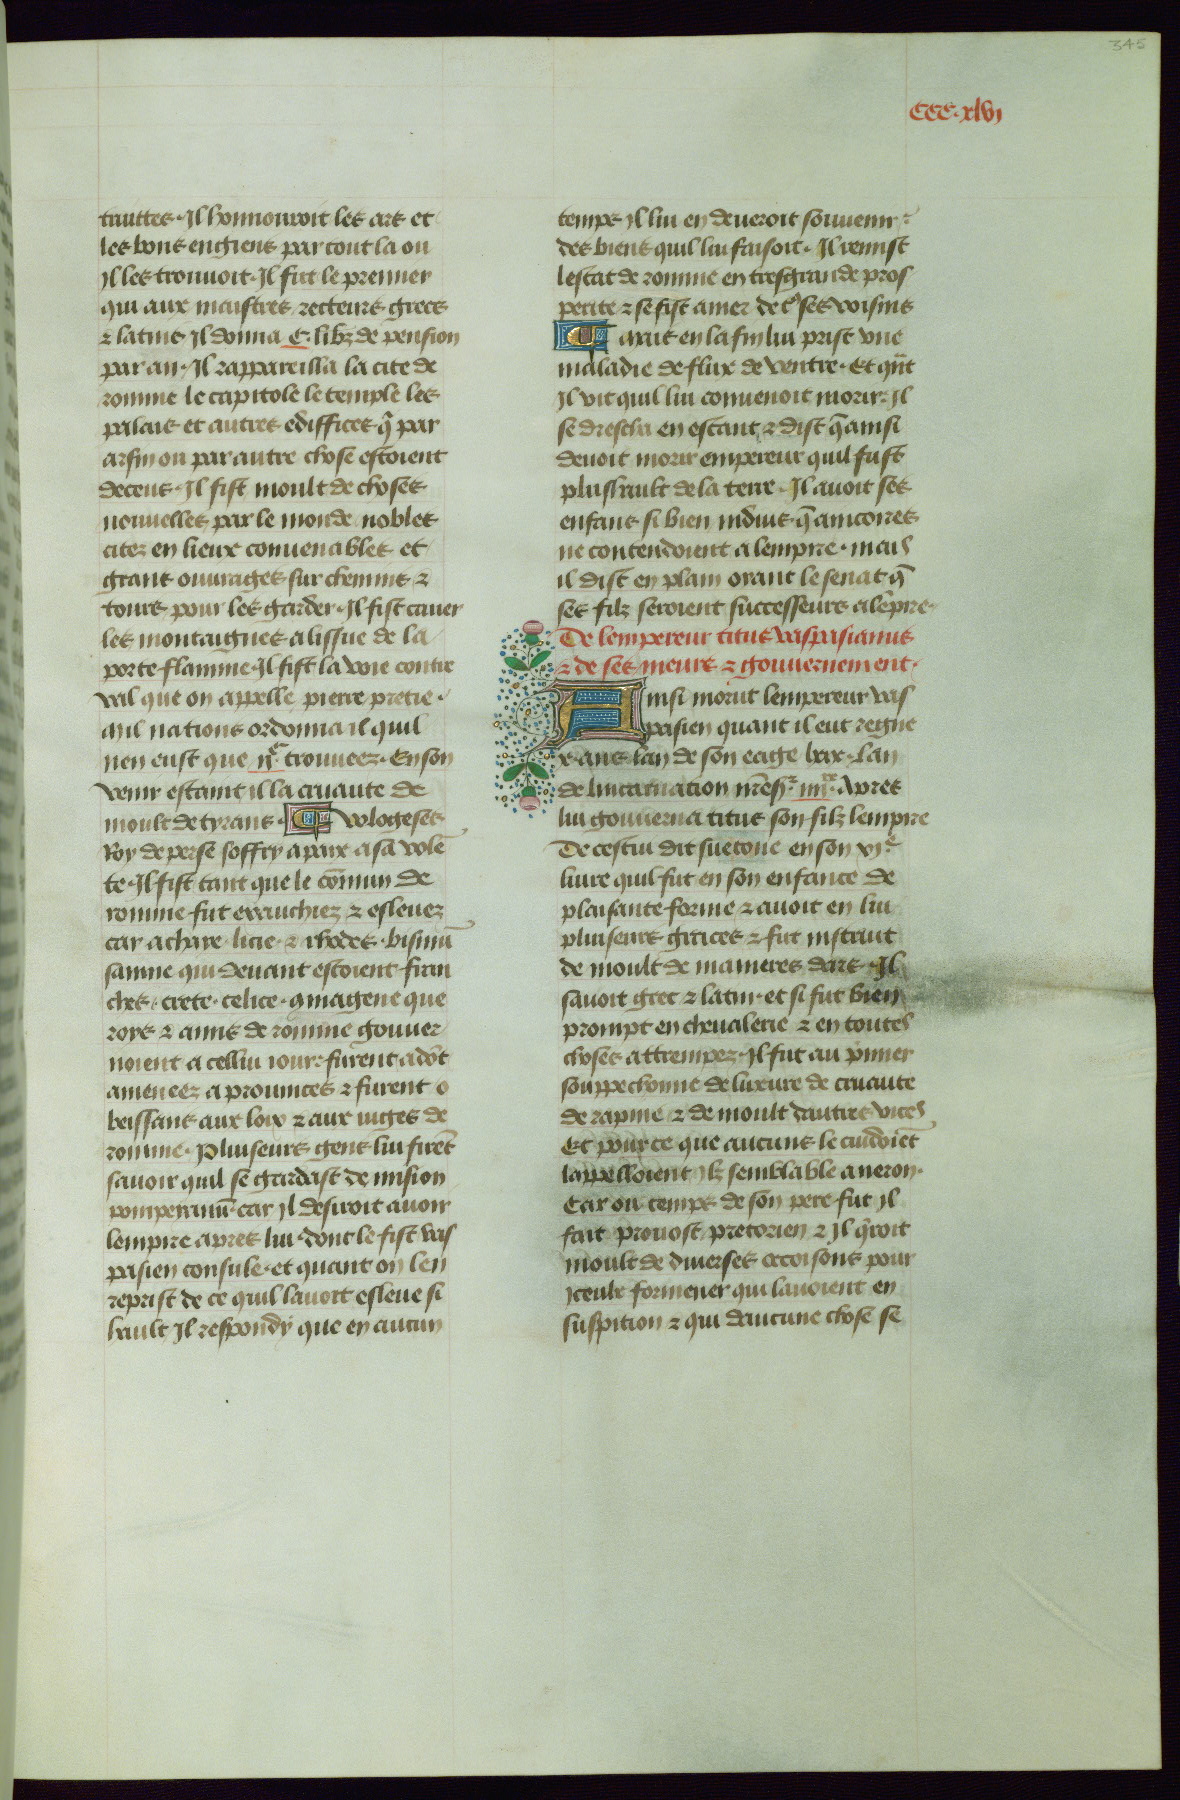 345
CCC·xlvj
traittes· Il honnouroit les ars et
les bons engiens par tout la ou
Il les trouuoit· Il fut le premier
qui aux maistres recteurs grecs
⁊ latins Il donna ·C· libz de pension
par an· Il rappareilla la cite de
romme le capitole le temple les
palais et autres ediffices q̄ par
arsin ou par autre chose estoient
deceus· Il fist moult de choses
nouuelles par le monde nobles
citez en lieux conuenables et
grans ouurages sur chemins ⁊
tours pour les garder· Il fist cauer
les montaignes a lissue de la
porte flamine· Il fist la voie contre
val que on appelle pierre pretie·
Mil nations ordonna il quil
nen eust que trouuez· En son
venir estaint il la cruaute de
moult de tyrans· Wlogeses
Roy de perse soffry a paix a sa vole
te· Il fist tant que le cōmun de
romme fut exauchiez ⁊ esleuez
car achaye· licie· ⁊ rhodes· bisanū
samne qui deuant estoient fran
ches· crete· celice· gmagene que
roys ⁊ amis de romme gouuer
noient a cellui iour furent adōt
amenees a prouinces ⁊ furent o
beissans aux loix ⁊ aux iuges de
romme· Pluiseurs gens lui firēt
sauoir quil se gardast de mision
pomperanū· car Il desiroit auoir
lempire apres lui· dont le fist vas
pasien consule· et quant on len
reprist de ce quil lauoit esleue si
hault Il respondy que en aucun
temps Il lui en deueroit souuenir·
des biens quil lui faisoit· Il remist
lestat de romme en tresgrande pros
perite ⁊ se fist amer de to9 ses voisins
Mais en la fin lui prist vne
maladie de flux de ventre· Et qūt
Il vit quil lui conuenoit morir· Il
se drescha en estant ⁊ dist q̄ ainsi
deuoit morir empereur quil fust
plus hault de la terre· Il auoit ses
enfans si bien induis q̄ ancores
ne contendoient a lempire· mais
il dist en plain orant le senat q̄
ses filz seroient successeurs a lēpire·
De lempereur titus vaspasianus
⁊ de ses meurs ⁊ gouuernement·
Ainsi morut lempereur vas
pasien quant il eut regne
x· ans lan de son eage lxix· Lan
de lincarnation Apres
lui gouuerna titus son filz lempire
De cestui dit suetone en son xjᵉ
liure quil fut en son enfance de
plaisante forme ⁊ auoit en lui
pluiseurs graces ⁊ fut instruit
de moult de manieres dars· Il
sauoit grec ⁊ latin· et si fut bien
prompt en cheualerie ⁊ en toutes
choses attrempez· Il fut au p̄mier
souppechonne de luxure de cruaute
de rapine ⁊ de moult dautres vices
Et pour ce que aucuns le cuidoiēt
lappelloient Ilz semblable a neron·
Car ou temps de son pere fut Il
fait prouost pretorien ⁊ Il q̄roit
moult de diuerses occoisons pour
Iceulx formener qui lauoient en
suspition ⁊ qui daucune chose se